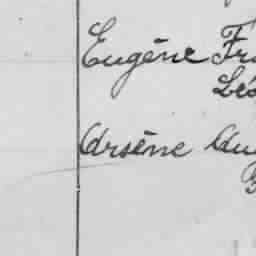 Eugène Fr
Lés
Arsène Au